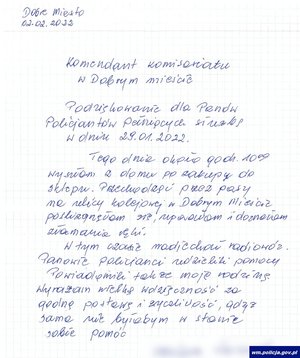 Dobre Miasto
02.02.2022
Komendant komisariatu
w Dobrym mieście
Podziękowanie dla Panów
Policjantów Pełniących służbę
w dniu 29.01.2022.
Tego dnia około godz. 10
wyszłam z domu po zakupy do
sklepu. Przechodząc przez pasy
na ulicy kolejowej w Dobrym Mieście
poślizgnęłam się, upadłam i doznałam
złamania ręki.
W tym czasie nadjechał radiowóz.
Panowie policjanci udzielili pomocy
Powiadomili także moją rodzinę
Wyrażam wielką wdzięczność za
godną postawę i życzliwość, gdyż
sama nie byłabym w stanie
sobie pomóc
wm.policja.gov.pl